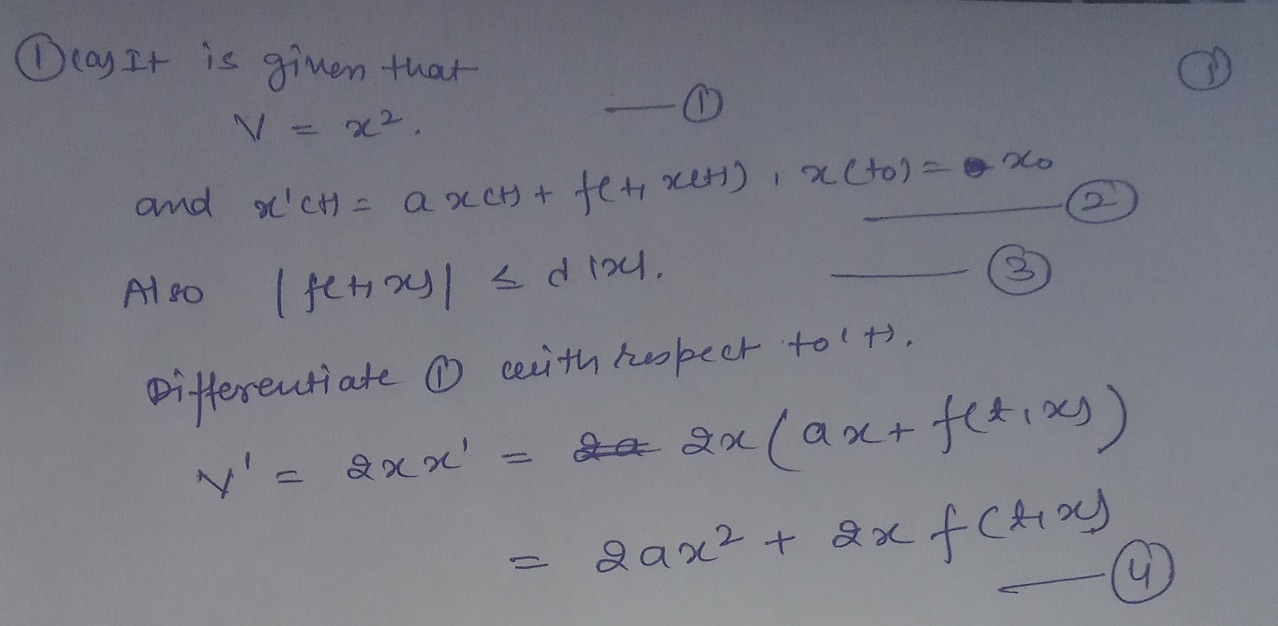 ① (a) It is given that
V = x². —①
①
and x'(t) = a x(t) + f(t, x(t)), x(t₀) = x₀ —②
Also |f(t, x)| ≤ d|x|. —③
Differentiate ① with respect to 't'.
V' = 2xx' = 2x(ax + f(t, x))
= 2ax² + 2x f(t, x) —④